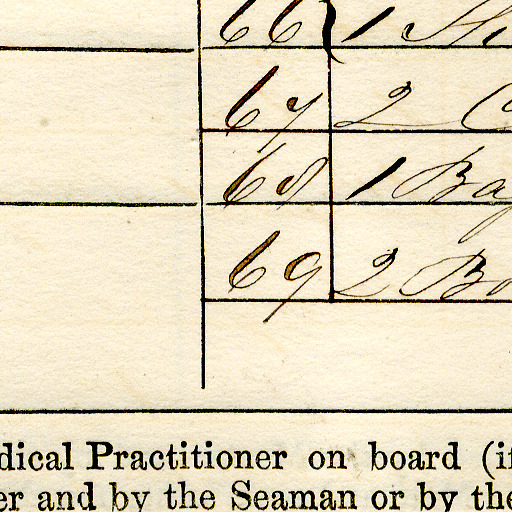 66 1
67 2
68 1
69 2
dical Practitioner on board (if
er and by the Seaman or by the